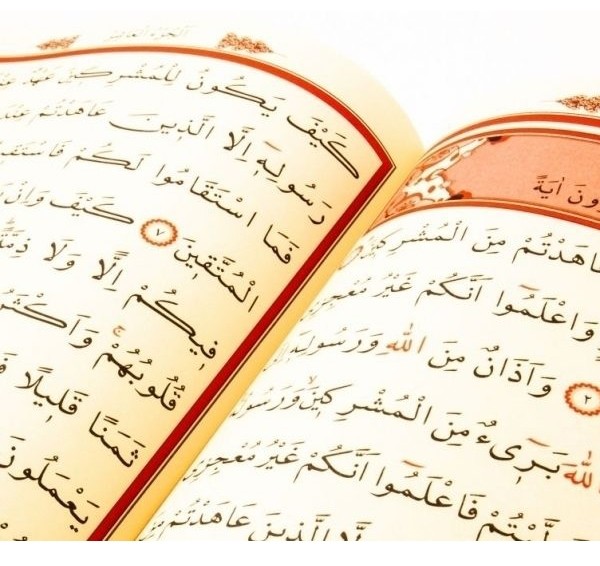 رُونَ اٰيَةً
عَاهَدْتُمْ مِنَ الْمُشْرِكِينَ
وَاعْلَمُٓوا اَنَّكُمْ غَيْرُ مُعْجِزِي
٢ وَاَذَانٌ مِنَ اللّٰهِ وَرَسُولِهٖٓ
اللّٰهَ بَرٖٓيءٌ مِنَ الْمُشْرِكٖينَ وَرَسُولُهُ
فَاعْلَمُٓوا اَنَّكُمْ غَيْرُ مُعْجِزِي
اِلَّا الَّذٖينَ عَاهَدْتُمْ
الجزء العاشر
كَيْفَ يَكُونُ لِلْمُشْرِكٖينَ عَهْدٌ عِنْدَ
رَسُولِهٖٓ اِلَّا الَّذٖينَ عَاهَدْتُمْ عِنْدَ
فَمَا اسْتَقَامُوا لَكُمْ فَاسْتَقٖ
الْمُتَّقٖينَ ٧ كَيْفَ وَاِنْ
فٖيكُمْ اِلًّا وَلَا ذِمَّةً
قُلُوبُهُمْ وَاَكْثَرُ
ثَمَنًا قَلٖيلًا
يَعْمَلُونَ